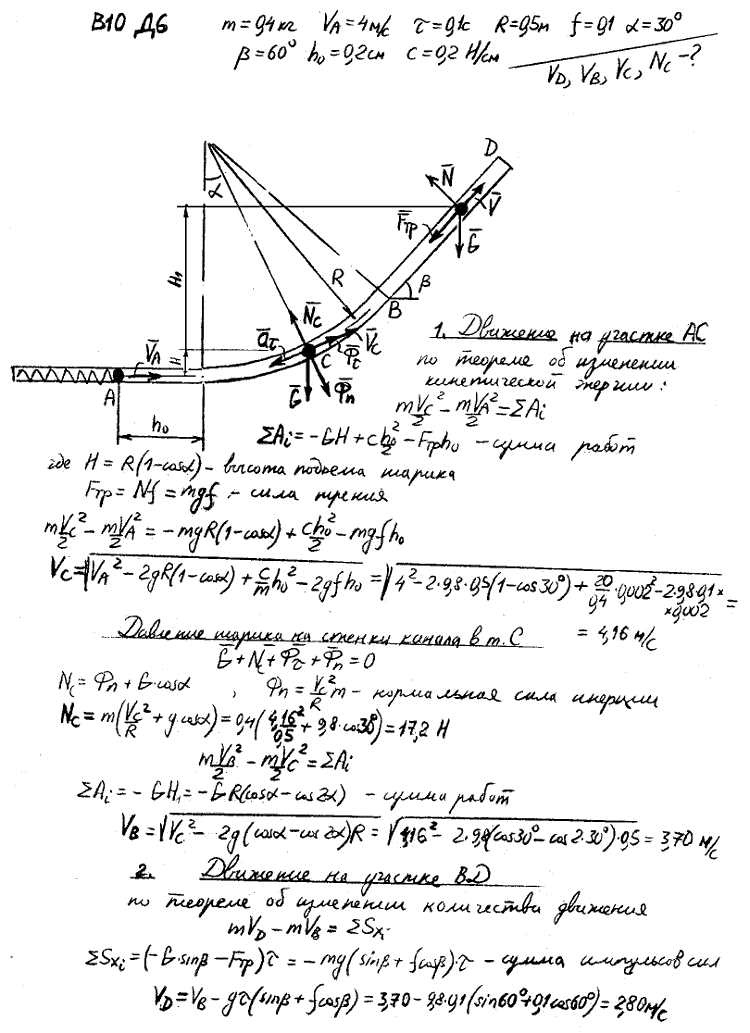 В10 Д6 m=0,4кг V_A=4м/с τ=0,1с R=0,5м f=0,1 α=30°
β=60° h₀=0,2см c=0,2 Н/см V_D, V_B, V_C, N_C -?
D
N̄
V̄
F̄тр
Ḡ
α
H₁
R
β
B
N̄_C
V̄_C
ā_τ
Φ̄_τ
C
V̄_A
H
A
Ḡ
Φ̄n
h₀
1. Движение на участке АС
по теореме об изменении
кинетической энергии:
mV_C²/2 - mV_A²/2 = ΣAi
ΣAi = -GH + ch₀²/2 - Fтрh₀ - сумма работ
где H = R(1-cosα) - высота подъема шарика
Fтр = Nf = mgf - сила трения
mV_C²/2 - mV_A²/2 = -mgR(1-cosα) + ch₀²/2 - mgfh₀
V_C = √(V_A² - 2gR(1-cosα) + c/m h₀² - 2gfh₀) = √(4² - 2·9,8·0,5(1-cos30°) + 20/0,4·0,002² - 2·9,8·0,1× ×0,002) =
= 4,16 м/с
Давление шарика на стенки канала в т. С
Ḡ + N̄_C + Φ̄_τ + Φ̄n = 0
N_C = Φn + G·cosα , Φn = V_C²/R m - нормальная сила инерции
N_C = m(V_C²/R + g cosα) = 0,4(4,16²/0,5 + 9,8·cos30°) = 17,2 Н
mV_B²/2 - mV_C²/2 = ΣAi
ΣAi = -GH₁ = -GR(cosα - cos2α) - сумма работ
V_B = √(V_C² - 2g(cosα - cos2α)R) = √(4,16² - 2·9,8(cos30° - cos2·30°)·0,5) = 3,70 м/с
2. Движение на участке BD
по теореме об изменении количества движения
mV_D - mV_B = ΣSxi
ΣSxi = (-G·sinβ - Fтр)τ = -mg(sinβ + fcosβ)·τ - сумма импульсов сил
V_D = V_B - gτ(sinβ + fcosβ) = 3,70 - 9,8·0,1(sin60° + 0,1cos60°) = 2,80 м/с